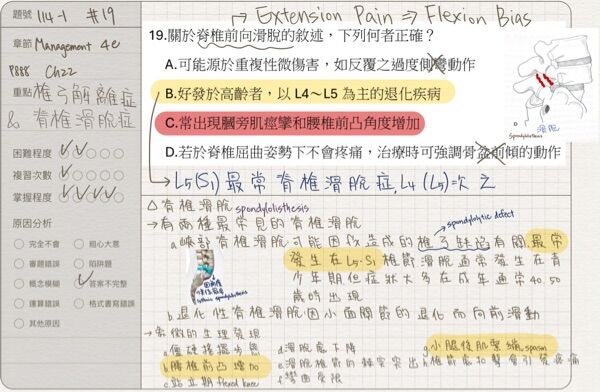 題號 114-1 #19
章節 Management 4e
P888 Ch22
重點 椎弓解離症
& 脊椎滑脫症
困難程度
複習次數
掌握程度
原因分析
完全不會
粗心大意
審題錯誤
陷阱題
概念模糊
答案不完整
運算錯誤
格式書寫錯誤
其他原因
Extension Pain ⇒ Flexion Bias
19.關於脊椎前向滑脫的敘述,下列何者正確?
A.可能源於重複性微傷害,如反覆之過度側彎動作
B.好發於高齡者,以 L4~L5 為主的退化疾病
C.常出現膕旁肌痙攣和腰椎前凸角度增加
D.若於脊椎屈曲姿勢下不會疼痛,治療時可強調骨盆前傾的動作
spondylolisthesis
滑脫
→ L5(S1) 最常脊椎滑脫症, L4 (L5)次之
△脊椎滑脫 spondylolisthesis
→有兩種最常見的脊椎滑脫
spondylolytic defect
a.峽部脊椎滑脫可能因 造成的椎弓缺陷有關,最常
發生在L5-S1椎節滑脫通常發生在青
少年期但症狀大多在成年通常40.50
歲時出現
b.退化性脊椎滑脫:因小面關節的退化而向前滑動
→ 徵的生理發現
a.僵硬搖擺步態
d.滑脫處下降
g.小腿後肌緊繃,spasm
b.腰椎前凸增加
e.滑脫椎節的棘突突出
h.椎節處 會引發疼痛
c.站立期 flexed knee
f.彎曲受限